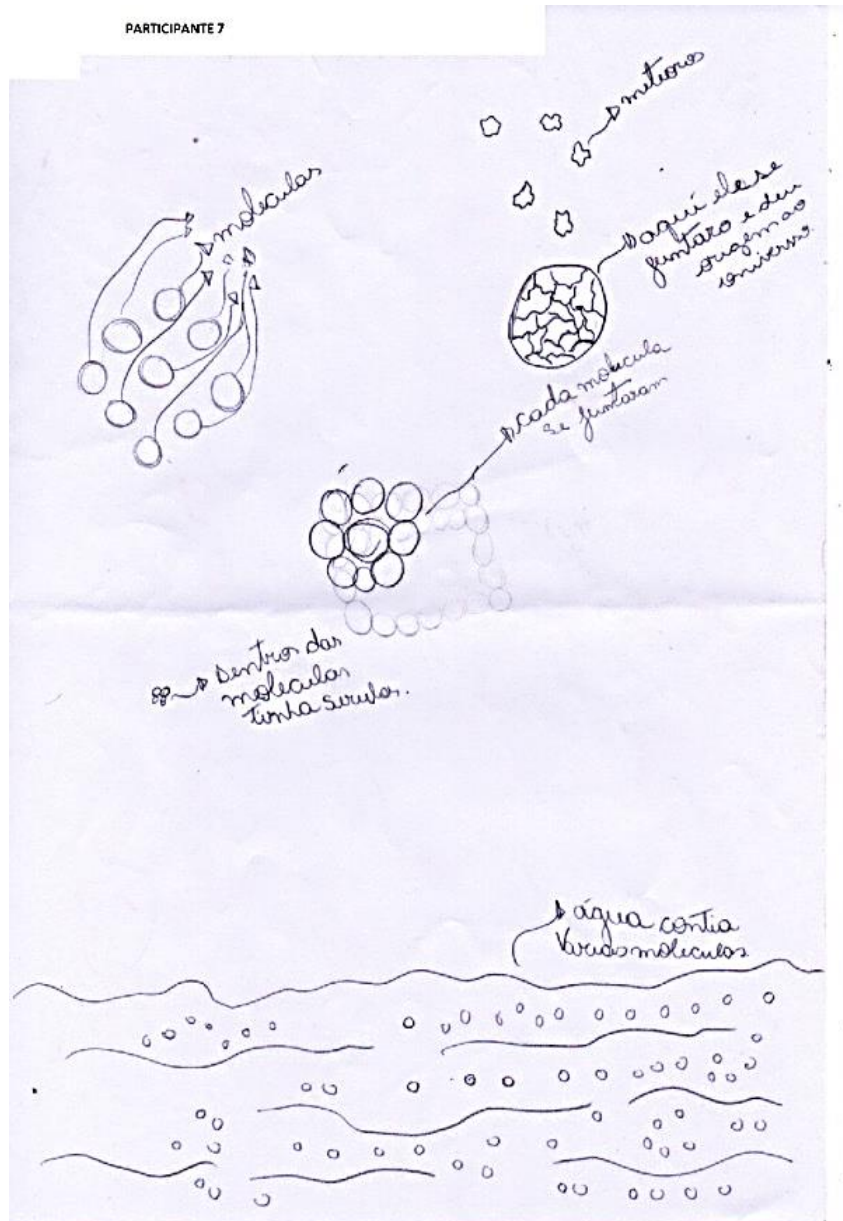 PARTICIPANTE 7
meteoros
moleculas
aqui eles se
juntaro e deu
origem ao
universo.
cada molecula
se juntaram
Dentros das
moleculas
tinha
água contia
Varias moleculas